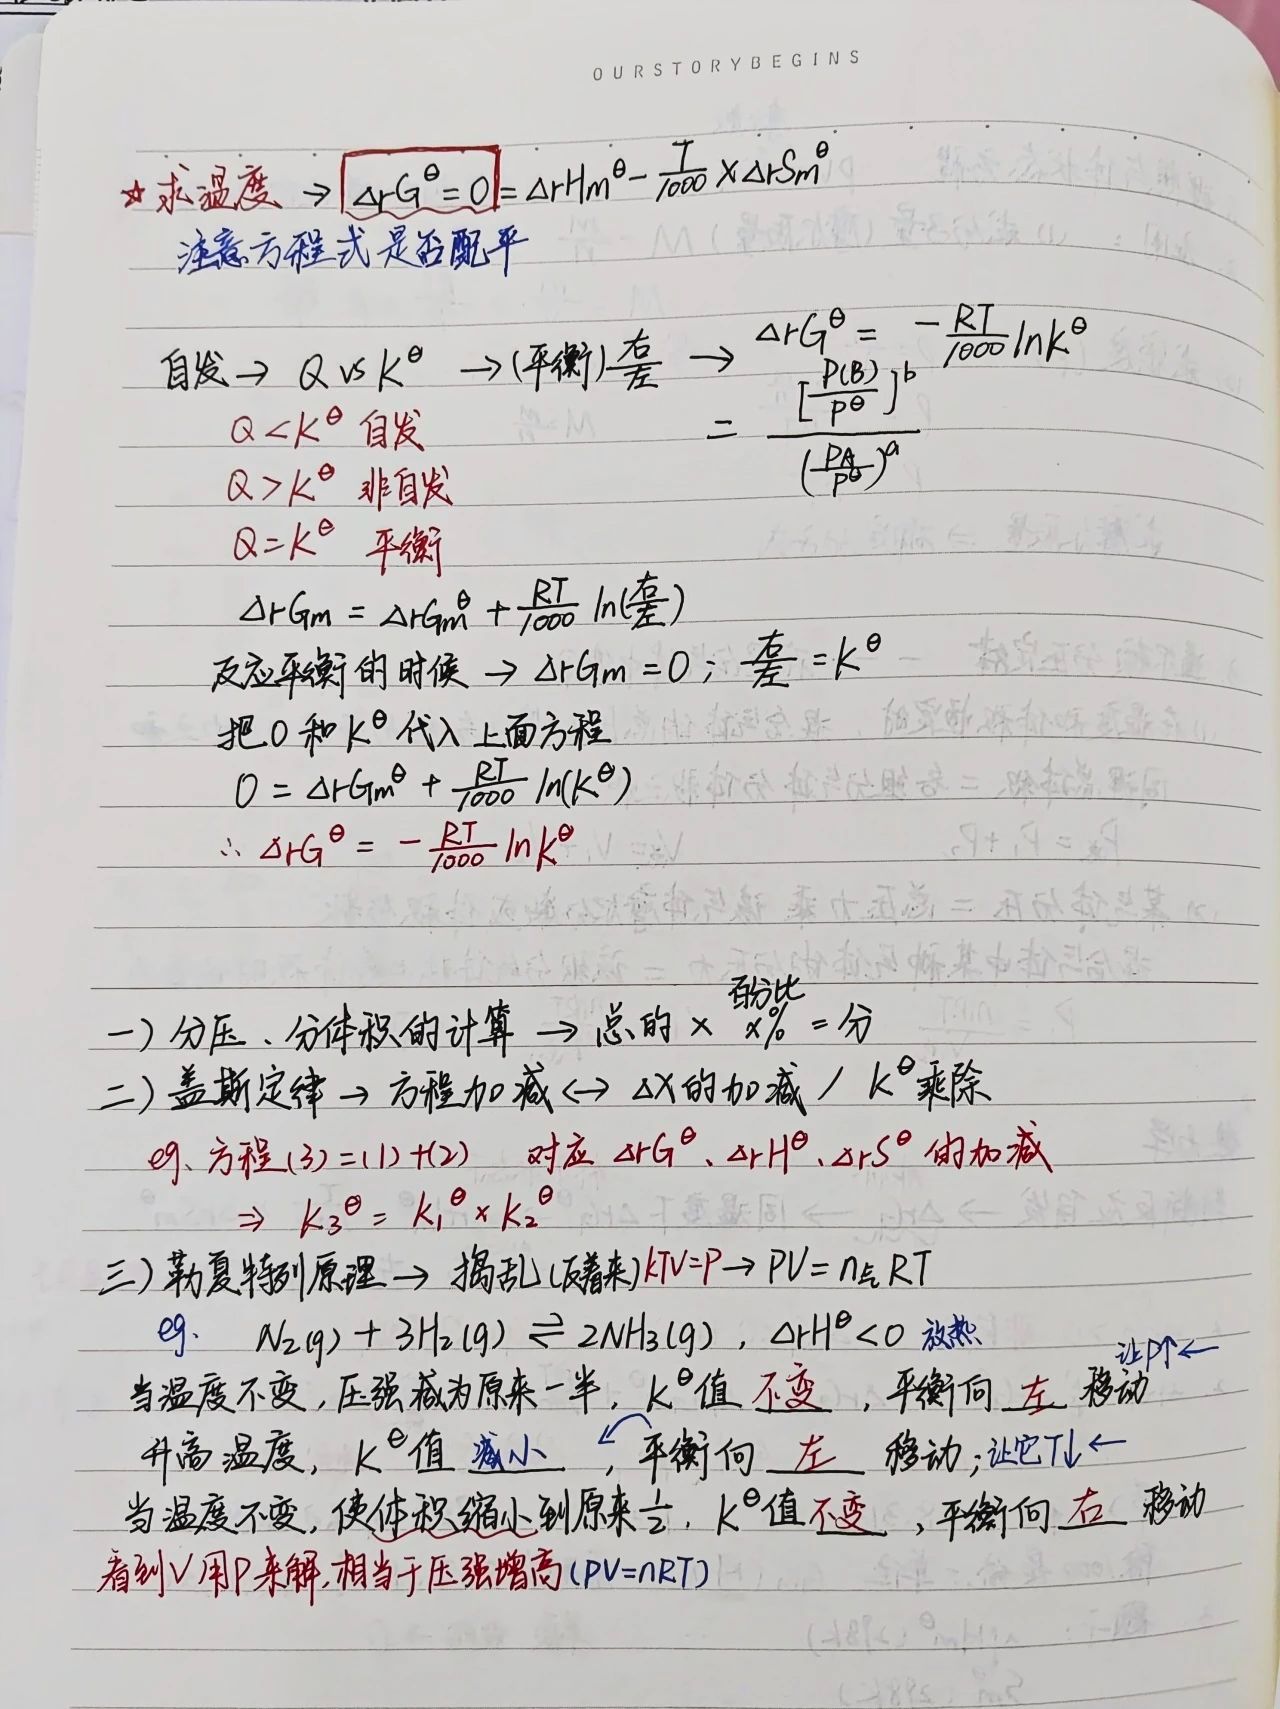 OURSTORYBEGINS
☆求温度 → ΔrG^θ = 0 = ΔrHm^θ - T/1000 × ΔrSm^θ
注意方程式是否配平
自发 → Q vs K^θ → (平衡) 右/左 → ΔrG^θ = -RT/1000 lnK^θ
= [P(B)/P^θ]^b / (PA/P^θ)^a
Q < K^θ 自发
Q > K^θ 非自发
Q = K^θ 平衡
ΔrGm = ΔrGm^θ + RT/1000 ln(右/左)
反应平衡的时候 → ΔrGm = 0; 右/左 = K^θ
把0和K^θ代入上面方程
0 = ΔrGm^θ + RT/1000 ln(K^θ)
∴ ΔrG^θ = -RT/1000 lnK^θ
百分比
一) 分压、分体积的计算 → 总的 × x% = 分
二) 盖斯定律 → 方程加减 ↔ ΔX的加减 / K^θ乘除
eg. 方程(3)=(1)+(2) 对应 ΔrG^θ、ΔrH^θ、ΔrS^θ 的加减
⇒ K3^θ = K1^θ × K2^θ
三) 勒夏特列原理 → 捣乱(反着来) KTV=P → PV = n总RT
eg. N2(g) + 3H2(g) ⇌ 2NH3(g), ΔrH^θ < 0 放热
让P↑←
当温度不变, 压强减为原来一半, K^θ值 不变, 平衡向 左 移动
升高温度, K^θ值 减小, 平衡向 左 移动; 让它T↓←
当温度不变, 使体积缩小到原来1/2, K^θ值 不变, 平衡向 右 移动
看到V用P来解, 相当于压强增高(PV=nRT)